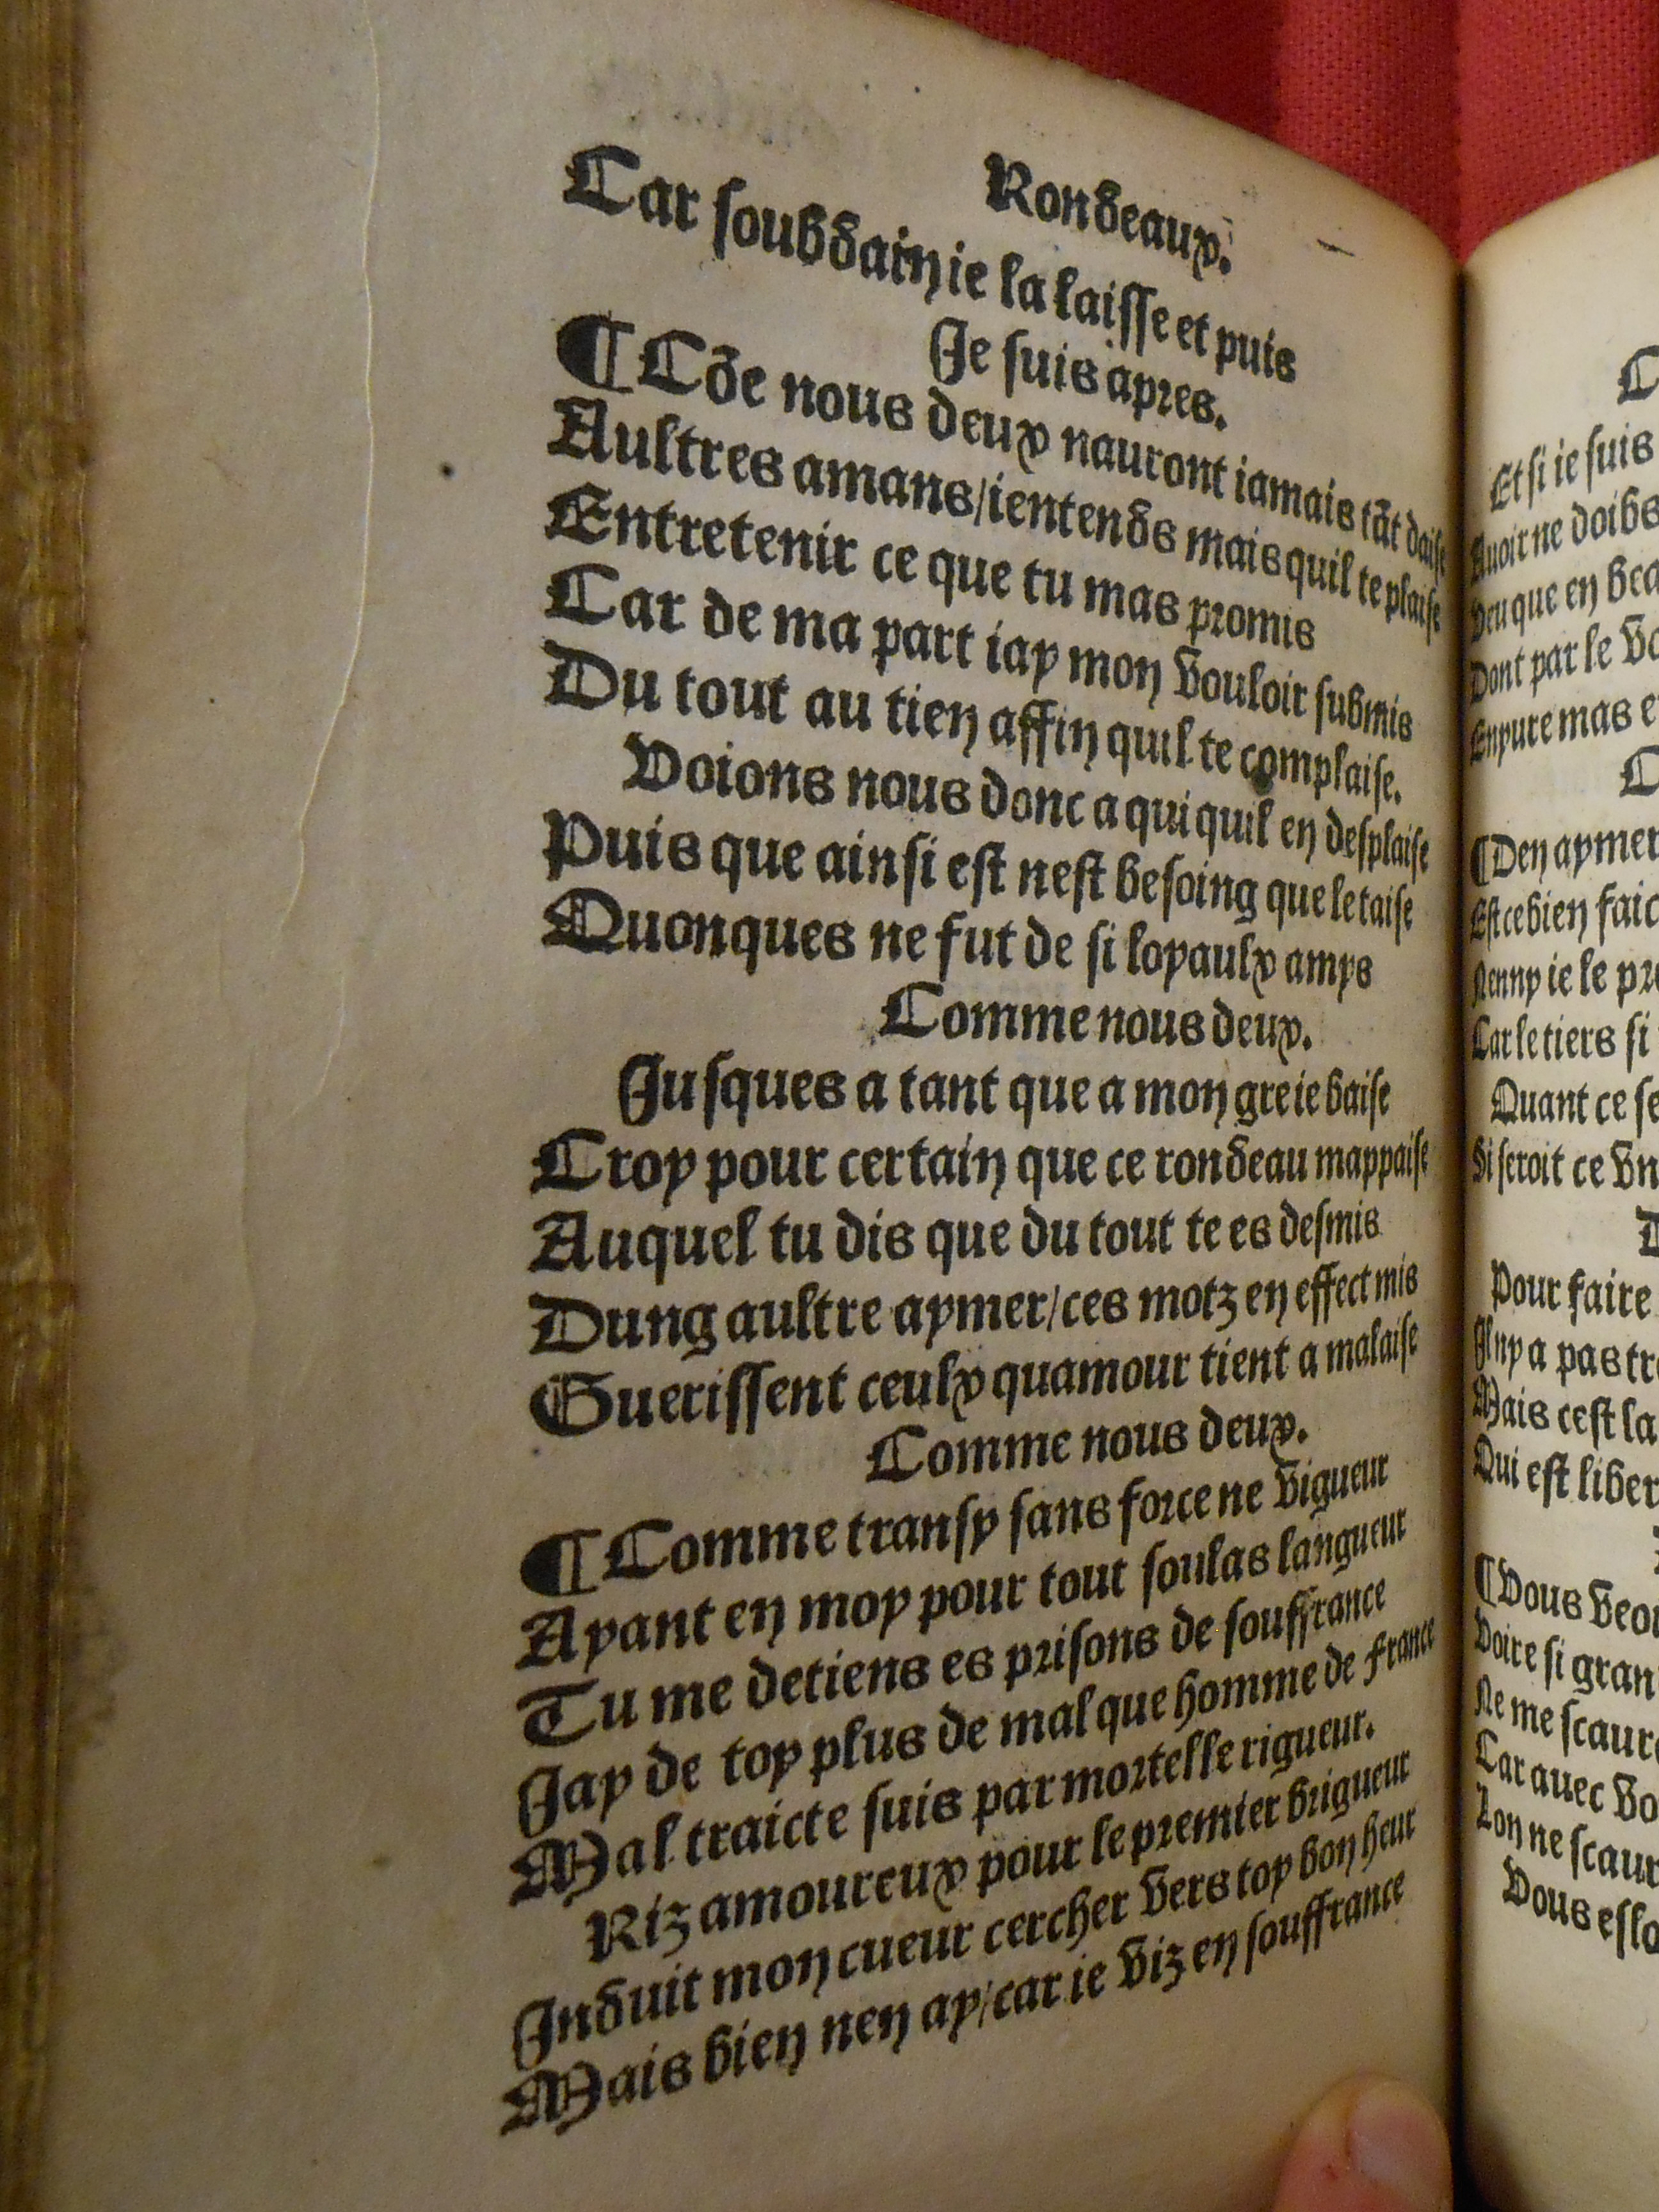 Rondeaux.
Car soubdain ie la laisse et puis
Je suis apres.
¶ Cõe nous deux nauront iamais tãt daise
Aultres amans/ientends mais quil te plaise
Entretenir ce que tu mas promis
Car de ma part iay mon vouloir submis
Du tout au tien affin quil te complaise.
Voions nous donc a qui quil en desplaise
Puis que ainsi est nest besoing que le taise
Quonques ne fut de si loyaulx amys
Comme nous deux.
Jusques a tant que a mon gre ie baise
Croy pour certain que ce rondeau mappaise
Auquel tu dis que du tout te es desmis
Dung aultre aymer/ces motz en effect mis
Guerissent ceulx quamour tient a malaise
Comme nous deux.
¶ Comme transy sans force ne vigueur
Ayant en moy pour tout soulas langueur
Tu me detiens es prisons de souffrance
Jay de toy plus de mal que homme de france
Mal traicte suis par mortelle rigueur.
Riz amoureux pour le premier brigueur
Induit mon cueur cercher vers toy bon heur
Mais bien nen ay/car ie viz en souffrance
Et si ie suis
Auoir ne doibs
Veu que en
Dont par le
Enyure mas
¶ Den aymer
Est ce bien
Nenny ie le
Car le tiers si
Quant ce
Si seroit ce vn
Pour faire
Il ny a pas
Mais cest la
Qui est
¶ Vous
Voire si
Ne me
Car auec
Lon ne
Vous